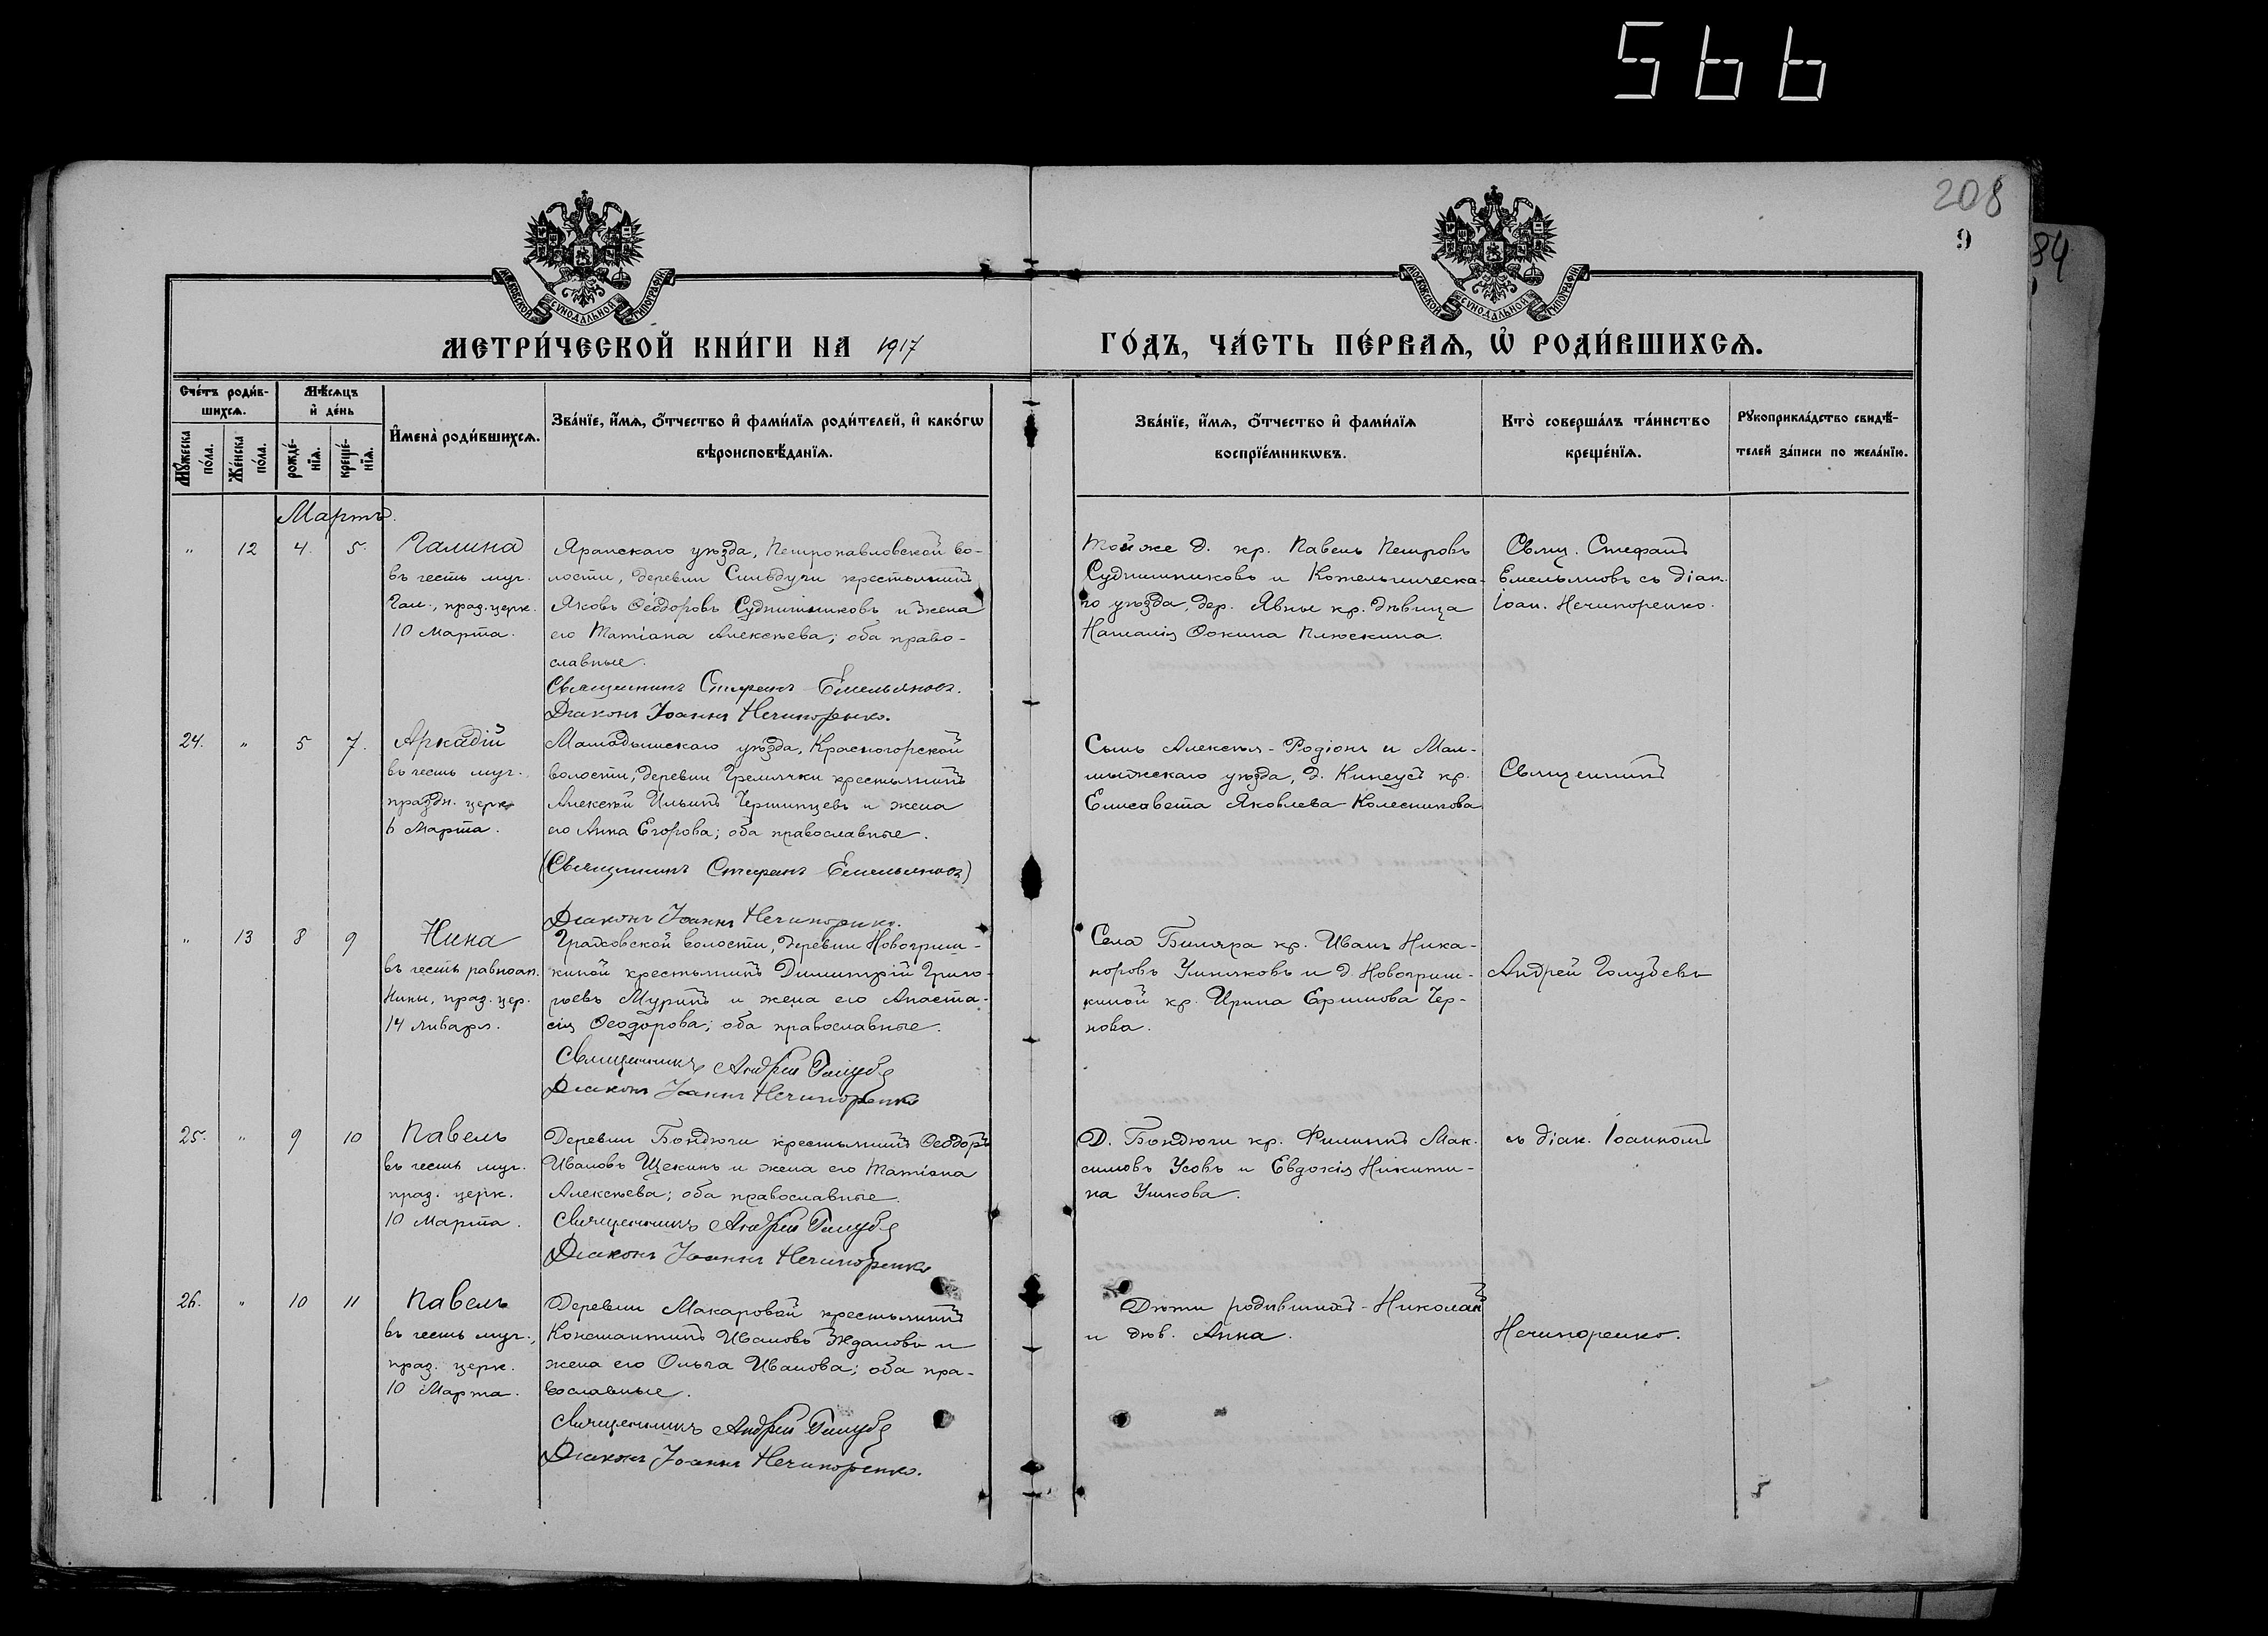 566
208
9
84
МОСКОВСКОЙ СУНОДАЛЬНОЙ ТИПОГРАФІИ
МОСКОВСКОЙ СУНОДАЛЬНОЙ ТИПОГРАФІИ
МЕТРИ́ЧЕСКОЙ КНИ́ГИ НА 1917
ГО́ДЪ, ЧА́СТЬ ПЕ́РВАѦ, Ѡ҆ РОДИ́ВШИХСѦ.
Сче́тъ роди́в-
шихсѧ.
Мꙋ́жеска по́ла.
Же́нска по́ла.
Мѣ́сѧцъ
и҆ де́нь
рожде́-
нїѧ.
креще́-
нїѧ.
И҆мена̀ роди́вшихсѧ.
Зва́нїе, и҆́мѧ, ѻ҆́тчество и҆ фами́лїѧ роди́телей, и҆ како́гѡ
вѣроисповѣ́данїѧ.
Зва́нїе, и҆́мѧ, ѻ҆́тчество и҆ фами́лїѧ
воспрїе́мникѡвъ.
Кто̀ соверша́лъ та́инство
креще́нїѧ.
Рꙋкоприкла́дство свидѣ́-
телей за́писи по жела́нїю.
Мартъ.
" 12 4. 5. Галина
въ честь муч.
Гал., праз. церк.
10 Марта.
Яранскаго уѣзда, Петропавловской во-
лости, деревни крестьянинъ
Яковъ Ѳеодоровъ Суднишниковъ и жена
его Татіана Алексѣева; оба право-
славные.
Священникъ Стефанъ Емельяновъ.
Діаконъ Іоаннъ Нечипоренко.
Той же д. кр. Павелъ Петровъ
Суднишниковъ и Котельническа-
го уѣзда, дер. кр. дѣвица
Наталія Ѳокина
Свящ. Стефанъ
Емельяновъ съ діак.
Іоан. Нечипоренко.
24. " 5 7. Аркадій
въ честь муч.
праздн. церк
6 Марта.
Мамадышскаго уѣзда, Красногорской
волости, деревни Гремячки крестьянинъ
Алексѣй Ильинъ и жена
его Анна Егорова; оба православные.
(Священникъ Стефанъ Емельяновъ)
Діаконъ Іоаннъ Нечипоренко.
Сынъ Алексѣя - Родіонъ и Мал-
мыжскаго уѣзда, д. кр.
Елисавета Яковлева Колесникова
Священникъ
" 13 8 9 Нина
въ честь равноап.
Нины, праз. цер.
14 Января.
Граховской волости, деревни Новогриш-
киной крестьянинъ Димитрій Григо-
рьевъ Муринъ и жена его Анаста-
сія Ѳеодорова; оба православные.
Священникъ Андрей Голубевъ
Діаконъ Іоаннъ Нечипоренко
Села Биляра кр. Иванъ Ника-
норовъ и д. Новогриш-
киной кр. Ирина Ефимова Чер-
нова.
Андрей Голубевъ
25. " 9 10 Павелъ
въ честь муч.
праз. церк.
10 Марта.
Деревни Бондюги крестьянинъ Ѳеодоръ
Ивановъ Щекинъ и жена его Татіана
Алексѣева; оба православные.
Священникъ Андрей Голубевъ
Діаконъ Іоаннъ Нечипоренко
Д. Бондюги кр. Филиппъ Мак-
симовъ Усовъ и Евдокія Никити-
на Ушкова.
съ діак. Іоанномъ
26. " 10 11 Павелъ
въ честь муч.,
праз. церк.
10 Марта.
Деревни Макаровой крестьянинъ
Константинъ Ивановъ Ждановъ и
жена его Ольга Иванова; оба пра-
вославные.
Священникъ Андрей Голубевъ
Діаконъ Іоаннъ Нечипоренко.
Дѣти родившихъ - Николай
и дѣв. Анна.
Нечипоренко.